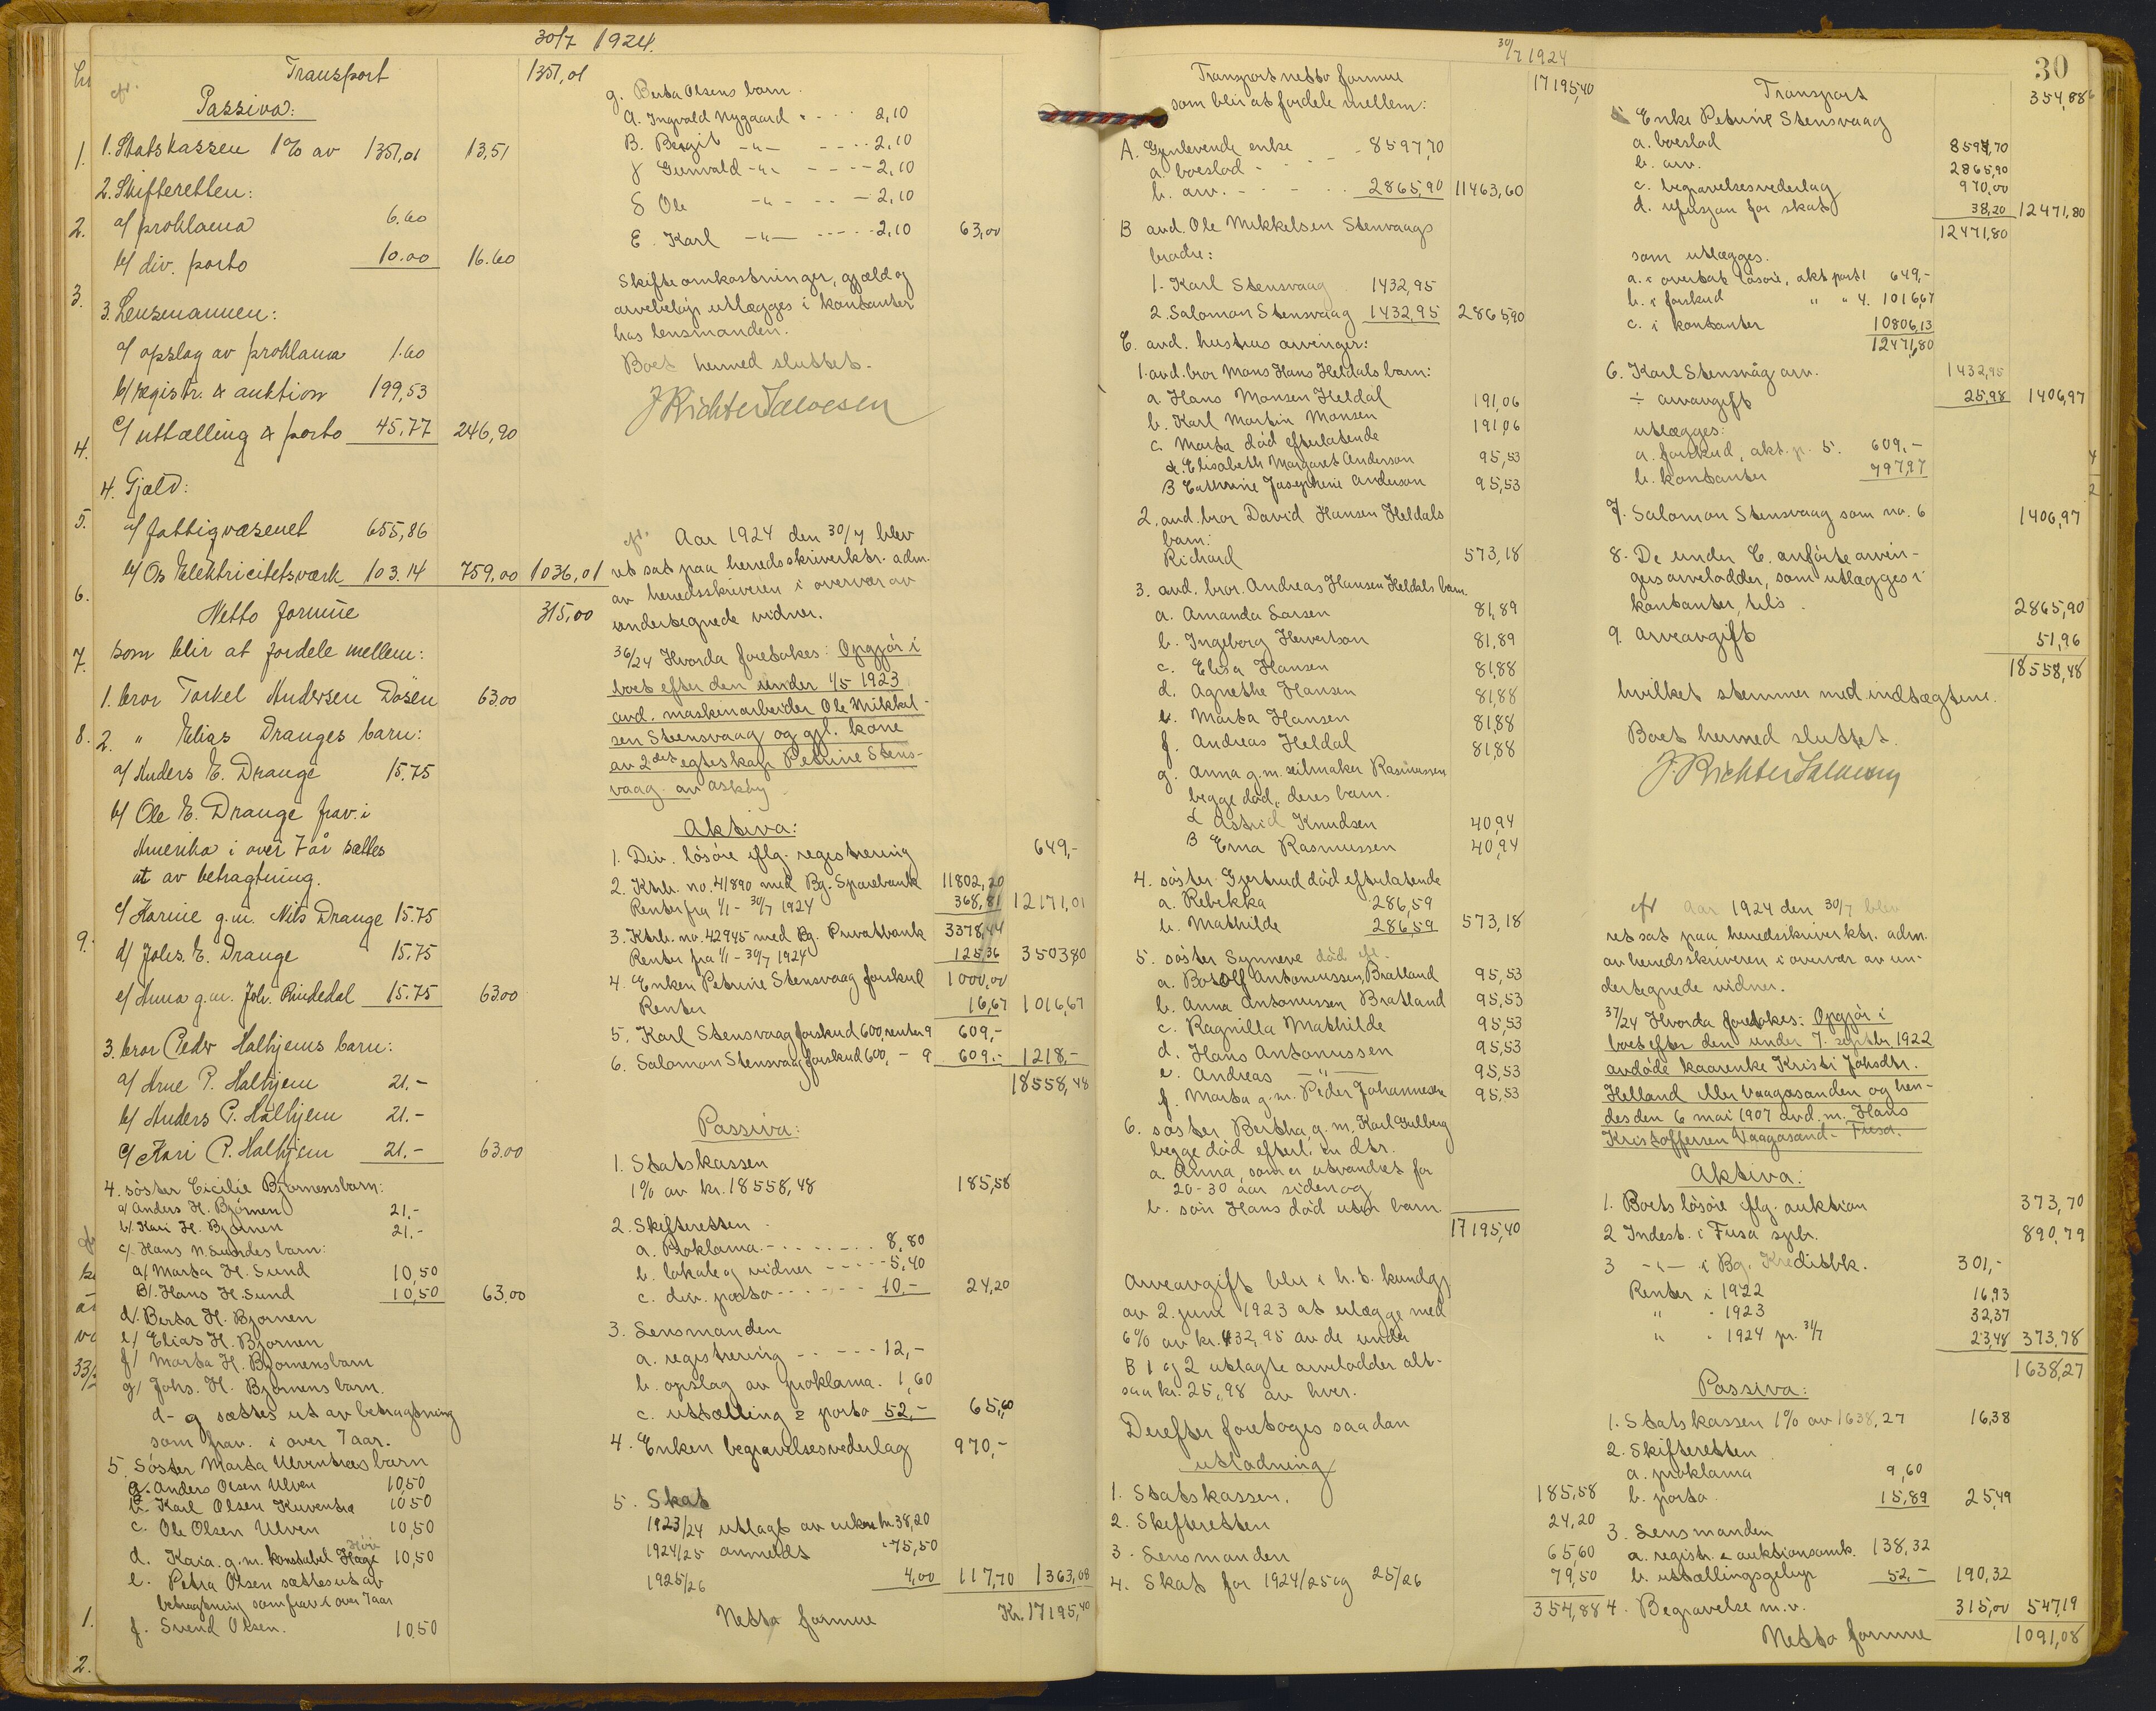 30/7 1924.
Transport 1351,01
Passiva:
1. Statskassen 1% av 1351,01 13,51
2. Skifteretten:
a/ proklama 6.60
b/ div. porto 10.00 16.60
3. Lensmannen:
a/ opslag av proklama 1.60
b/ registr. & auktion 199,53
c/ uttælling & porto 45.77 246,90
4. Gjæld:
a/ fattigvæsenet 655,86
b/ Os Elektricitetsværk 103.14 759,00 1036,01
Netto formue 315,00
som blir at fordele mellem:
1. bror Torkel Andersen Døsen 63.00
2. " Elias Dranges barn:
a/ Anders E. Drange 15.75
b/ Ole E. Drange frav. i
Amerika i over 7 år sættes
ut av betragtning.
c/ Karine g.m. Nils Drange 15.75
d/ Johs. E. Drange 15.75
e/ Anna g.m. Joh. Rindedal 15.75 63.00
3. bror Peder Halhjems barn:
a/ Arne P. Halhjem 21.-
b/ Anders P. Halhjem 21.-
c/ Kari P. Halhjem 21.- 63.00
4. søster Cicilie Bjørnens barn:
a/ Anders H. Bjørnen 21.-
b/. Kari H. Bjørnen 21.-
c/. Hans N. Sundes barn:
a/ Marta H. Sund 10,50
B/. Hans H. Sund 10,50 63,00
d/. Berta H. Bjørnen
e/ Elias H. Bjørnen
f/ Marta H. Bjørnens barn
g/ Johs. H. Bjørnens barn.
d-g sættes ut av betragtning
som frav. i over 7 aar.
5. Søster Marta Ulventræs barn
a. Anders Olsen Ulven 10,50
b. Karl Olsen Kuventræ 10,50
c. Ole Olsen Ulven 10,50
d. Kaia g.m. konstabel Hage 10,50
e. Petra Olsen sættes ut av
betragtning som frav. i over 7 aar
f. Svend Olsen. 10,50
g. Berta Olsens barn.
a. Ingvald Nygaard 2,10
B. Bergit -"- 2,10
γ Gunvald -"- 2,10
δ Ole -"- 2,10
E. Karl -"- 2,10 63,00
Skifteomkostninger, gjæld og
arvebeløp utlægges i kontanter
hos lensmanden.
Boet hermed sluttet.
J Richter Salvesen
Aar 1924 den 30/7 blev
ret sat paa herredsskriverktr. adm.
av herredsskriveren i overvær av
undertegnede vidner.
36/24 Hvorda foretokes: Opgjør i
boet efter den under 1/5 1923
avd. maskinarbeider Ole Mikkel-
sen Stensvaag og gjl. kone
av 2det egteskap Petrine Stens-
vaag av Askøy.
Aktiva:
1. Div. løsøre iflg. registrering 649,-
2. Ktrb. no. 41890 med Bg. Sparebank 11802,20
Renter fra 1/1 - 30/7 1924 368,81 12171,01
3. Ktrb. no. 42945 med Bg. Privatbank 3378,44
Renter fra 1/1 - 30/7 1924 125,36 3503,80
4. Enken Petrine Stensvaag forskud 1000,00
Renter 16,67 1016,67
5. Karl Stensvaag forskud 600, renter 9 609,-
6. Salomon Stensvaag forskud 600, - 9 609.- 1218,-
18558,48
Passiva:
1. Statskassen
1% av kr. 18558,48 185,58
2. Skifteretten
a. Proklama 8,80
b. lokale og vidner 5,40
c. div. porto 10,- 24,20
3. Lensmanden
a. registrering 12,-
b. opslag av proklama. 1,60
c. uttælling & porto 52,- 65,60
4. Enken begravelsesvederlag 970,-
5. Skat
1923/24 utlagt av enken kr. 38,20
1924/25 anmeldt " 75,50
1925/26 4,00 117,70 1363,08
Netto formue Kr. 17195,40
30/7 1924
30
Transport netto formue 17195,40
som blir at fordele mellem:
A. Gjenlevende enke
a. boeslod 8597,70
b. arv. 2865,90 11463,60
B avd. Ole Mikkelsen Stensvaags
brødre:
1. Karl Stensvaag 1432,95
2. Salomon Stensvaag 1432,95 2865,90
C. avd. hustrus arvinger:
1. avd. bror Mons Hans Heldals barn:
a. Hans Monsen Heldal 191,06
b. Karl Martin Monsen 191,06
c. Marta død efterlatende
α. Elisabeth Margaret Anderson 95,53
B Cathrine Josephine Anderson 95,53
2. avd. bror David Hansen Heldals
barn:
Richard 573,18
3. avd. bror. Andreas Hansen Heldals barn.
a. Amanda Larsen 81,89
b. Ingeborg Hervertson 81,89
c. Elisa Hansen 81,88
d. Agnethe Hansen 81,88
e. Marta Hansen 81,88
f. Andreas Heldal 81,88
g. Anna g.m. seilmaker Rasmussen
begge død, deres barn.
α Astrid Knudsen 40,94
B Erna Rasmussen 40,94
4. søster Gjertrud død efterlatende
a. Rebekka 286,59
b. Mathilde 286,59 573,18
5. søster Synneve død eft.
a. Botolf Antonussen Bratland 95,53
b. Anna Antonussen Bratland 95,53
c. Ragnilla Mathilde 95,53
d. Hans Antonussen 95,53
e. Andreas -"- 95,53
f. Marta g.m. Peder Johannesen 95,53
6. søster Bertha g.m. Karl Gulberg
begge død efterl. en dtr.
a. Anna, som er utvandret for
20-30 aar siden og
b. søn Hans død uten barn.
17195,40
Arveavgift blir i h.t. kundg.
av 2. juni 1923 at erlægge med
6% av kr. 432,95 av de under
B 1 og 2 utlagte arvelodder alt-
saa kr. 25,98 av hver.
Derefter foretoges saadan
utlodning
1. Statskassen. 185,58
2. Skifteretten 24,20
3. Lensmanden 65,60
4. Skat for 1924/25 og 25/26 79,50
354,88
Transport 354,88
5 Enke Petrine Stensvaag
a. boeslod 8597,70
b. arv. 2865,90
c. begravelsesvederlag 970,00
d. refusjon for skat 38,20 12471,80
12471,80
som utlægges.
a. i overtat løsøre, akt. post 1 649,-
b. i forskud " " 4. 1016,67
c. i kontanter 10806,13
12471,80
6. Karl Stensvåg arv. 1432,95
÷ arvavgift 25,98 1406,97
utlægges:
a. forskud, akt. p. 5. 609,-
b. kontanter 797,97
7. Salomon Stensvaag som no. 6 1406,97
8. De under C. anførte arvin-
gers arvelodder, som utlægges i
kontanter, tils. 2865,90
9. Arveavgift 51,96
18558,48
hvilket stemmer med indtægtene.
Boet hermed sluttet.
J. Richter Salvesen
Aar 1924 den 30/7 blev
ret sat paa herredsskriverktr. adm.
av herredsskriveren i overvær av un-
dertegnede vidner.
37/24 Hvorda foretokes: Opgjør i
boet efter den under 7. septbr. 1922
avdøde kaarenke Kristi Johsdtr.
Helland eller Vaagasanden og hen-
des den 6 mai 1907 avd. m. Hans
Kristoffersen Vaagasand - Fusa.
Aktiva:
1. Boets løsøre iflg. auktion 373,70
2 Indest. i Fusa spb. 890,79
3 -"- i Bg. Kreditbk. 301,-
Renter i 1922 16,93
" " 1923 32,37
" " 1924 pr. 31/7 23,48 373,78
1638,27
Passiva:
1. Statskassen 1% av 1638,27 16,38
2. Skifteretten
a. proklama 9,60
b. porto 15,89 25,49
3. Lensmanden
a. registr. & auktionsomk. 138,32
b. uttællingsgebyr 52,- 190,32
4. Begravelse m.v. 315,00 547,19
Netto formue 1091,08